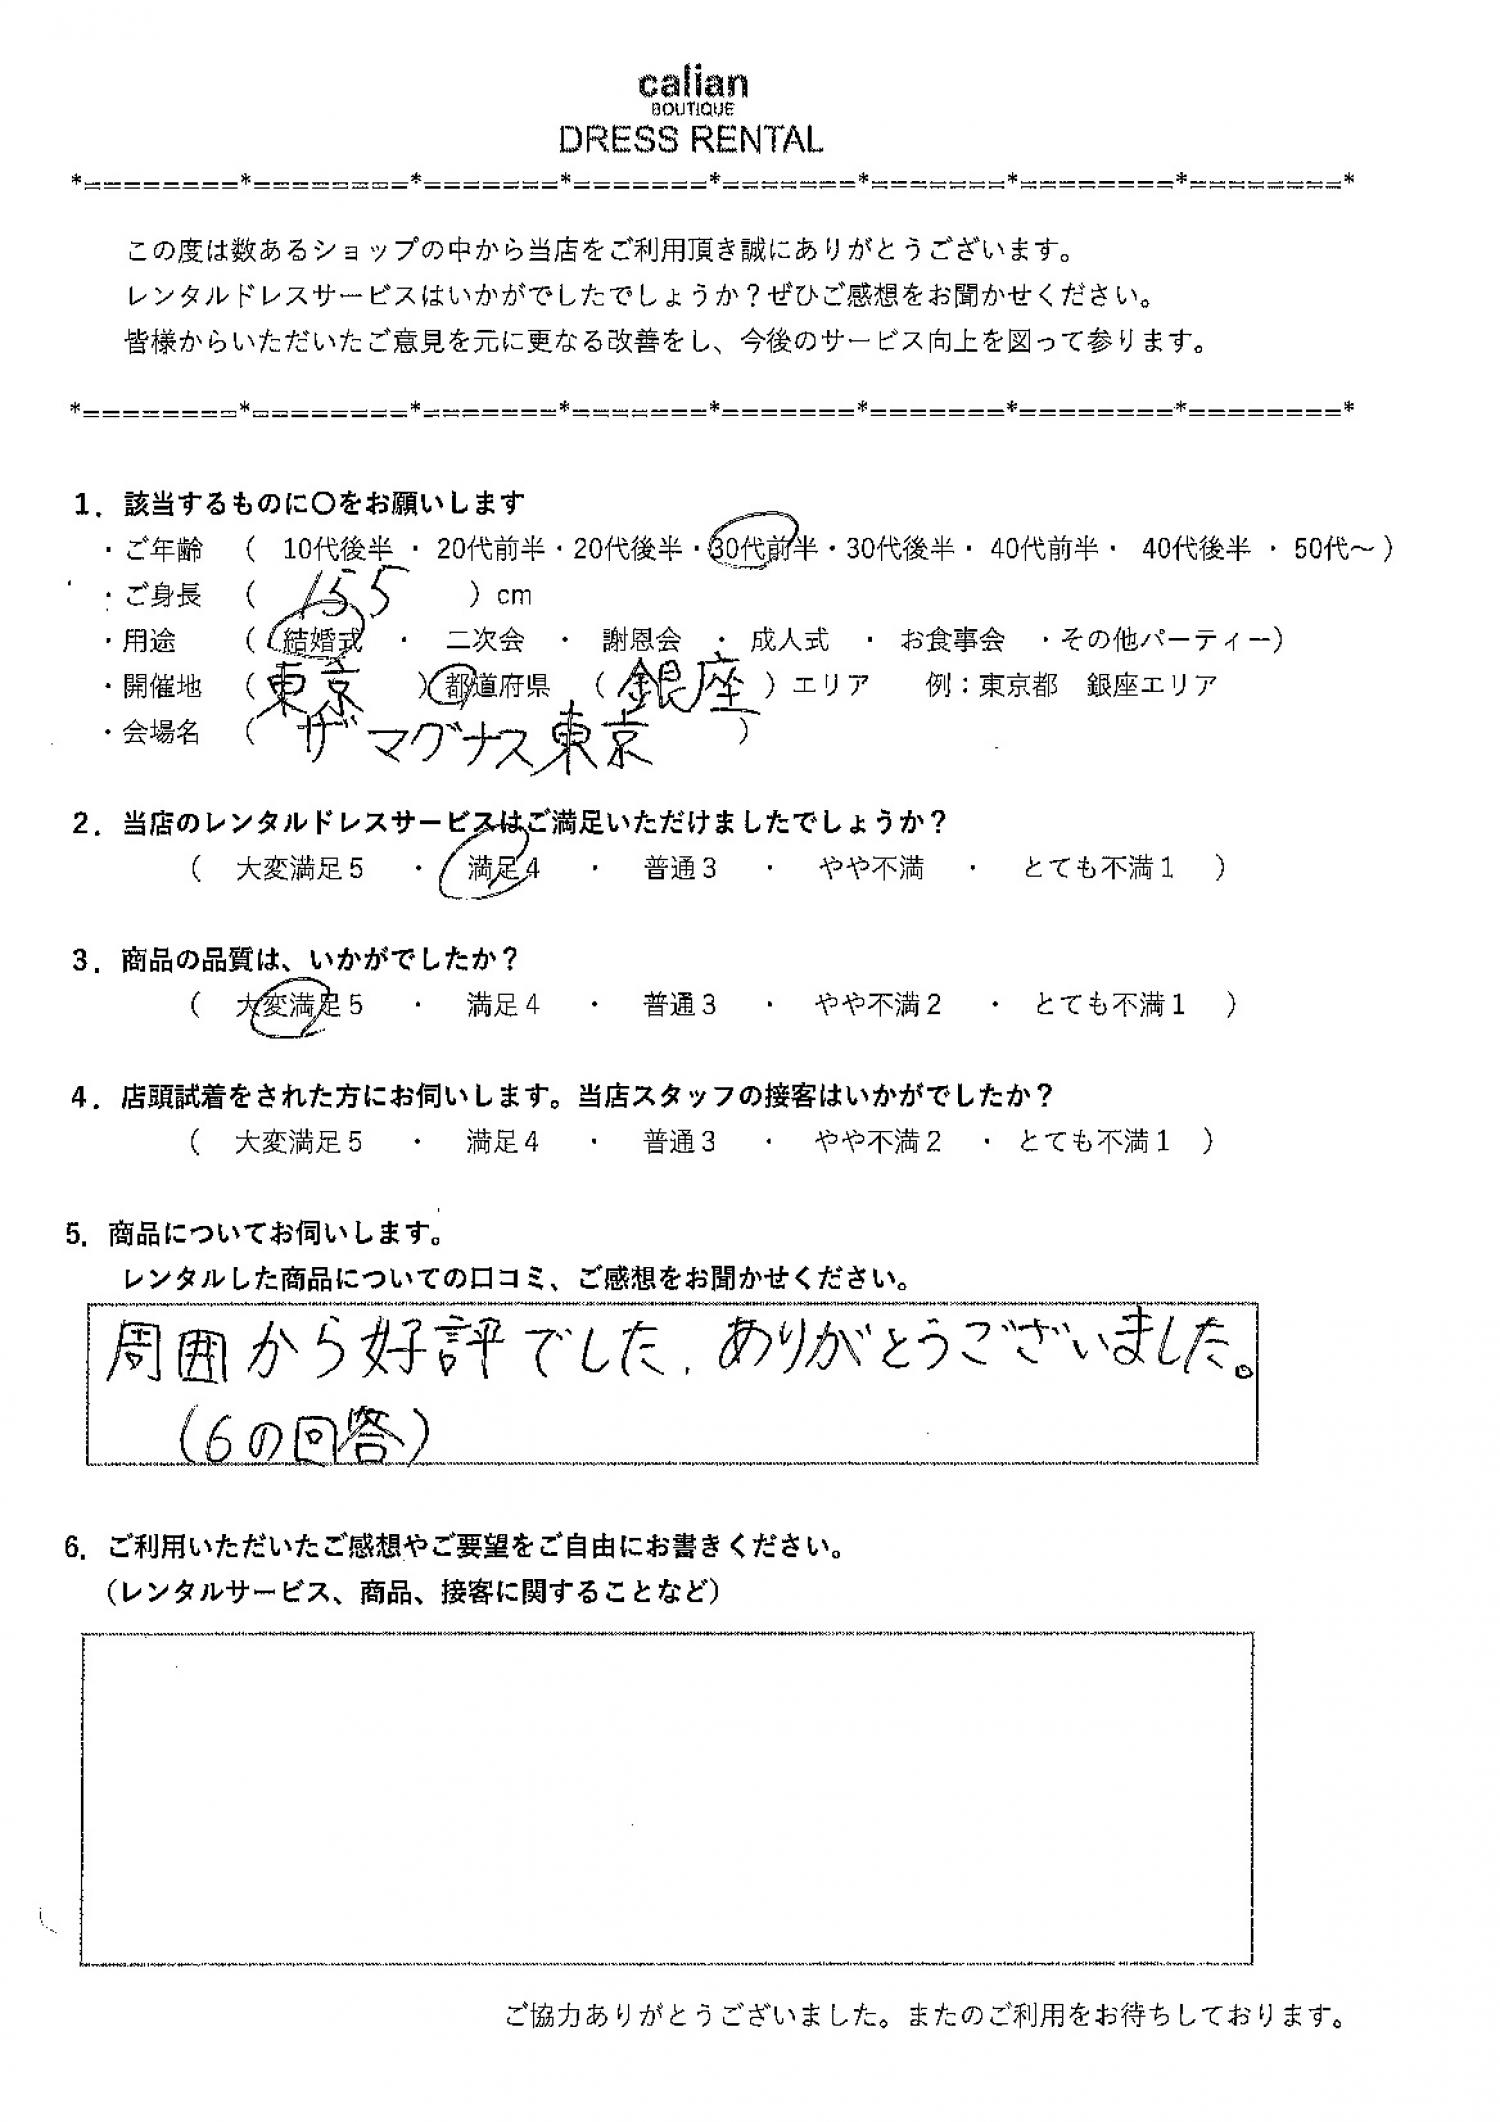 calian
BOUTIQUE
DRESS RENTAL
*========*========*=======*=======*=======*=======*========*========*
この度は数あるショップの中から当店をご利用頂き誠にありがとうございます。
レンタルドレスサービスはいかがでしたでしょうか？ぜひご感想をお聞かせください。
皆様からいただいたご意見を元に更なる改善をし、今後のサービス向上を図って参ります。
*========*========*=======*=======*=======*=======*========*========*
1．該当するものに〇をお願いします
・ご年齢 （ 10代後半 ・ 20代前半・20代後半・30代前半・30代後半・ 40代前半・ 40代後半 ・ 50代～ ）
・ご身長 （ 155 ）cm
・用途 （ 結婚式 ・ 二次会 ・ 謝恩会 ・ 成人式 ・ お食事会 ・その他パーティー）
・開催地 （ 東京 ）都道府県 （ 銀座 ）エリア 例：東京都 銀座エリア
・会場名 （ ザ マグナス東京 ）
2．当店のレンタルドレスサービスはご満足いただけましたでしょうか？
（ 大変満足５ ・ 満足４ ・ 普通３ ・ やや不満 ・ とても不満１ ）
3．商品の品質は、いかがでしたか？
（ 大変満足５ ・ 満足４ ・ 普通３ ・ やや不満２ ・ とても不満１ ）
4．店頭試着をされた方にお伺いします。当店スタッフの接客はいかがでしたか？
（ 大変満足５ ・ 満足４ ・ 普通３ ・ やや不満２ ・ とても不満１ ）
5．商品についてお伺いします。
レンタルした商品についての口コミ、ご感想をお聞かせください。
周囲から好評でした．ありがとうございました。
（6の回答）
6．ご利用いただいたご感想やご要望をご自由にお書きください。
（レンタルサービス、商品、接客に関することなど）
ご協力ありがとうございました。またのご利用をお待ちしております。